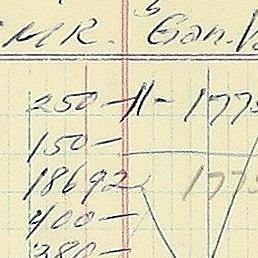 MR. Gon.
250 - 11 - 1775
150 -
18692 1775
400 -
380 -